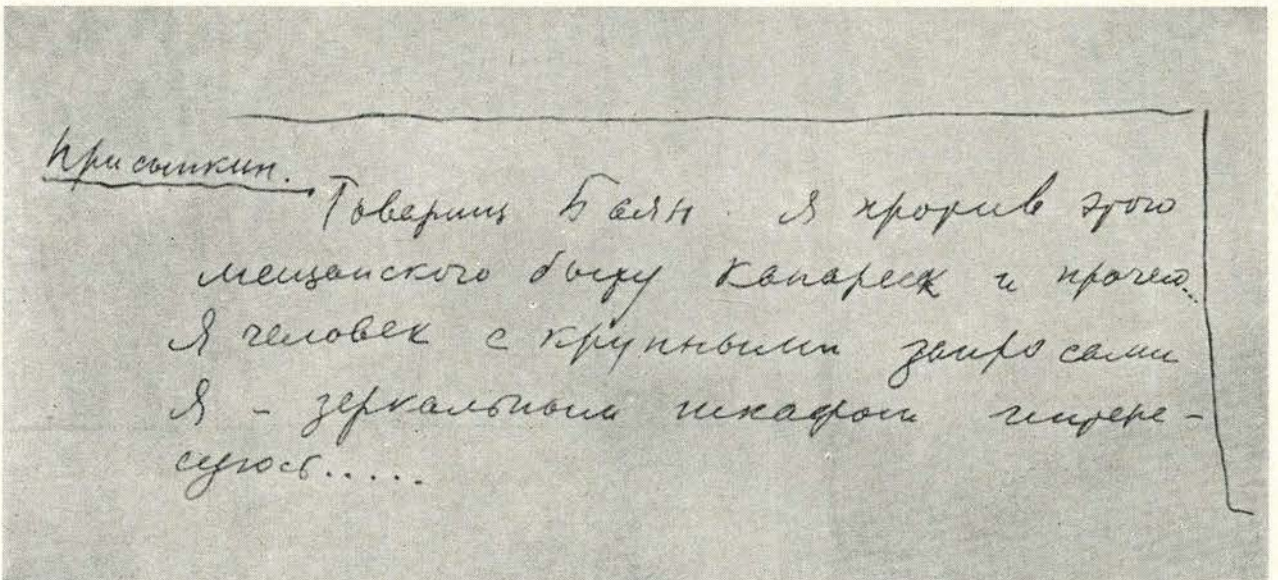 Присыпкин.
Товарищ Баян. Я против этого
мещанского быту канареек и прочего...
Я человек с крупными запросами
Я - зеркальным шкафом интере-
суюсь.....